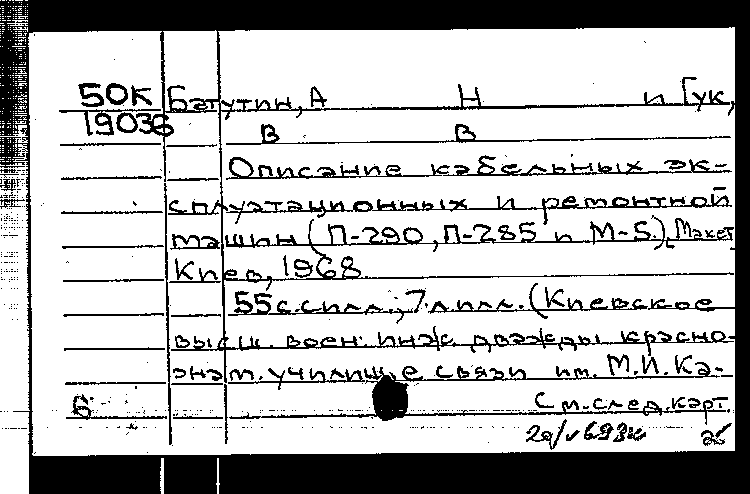 50К Батутин, А Н и Гук,
19036 В В
Описание кабельных эк-
сплуатационных и ремонтной
машин (П-290, П-285 и М-5). Макет
Киев, 1968
55с. с илл.; 7 л илл. (Киевское
высш. воен. инж. дважды красно-
знам. училище связи им. М.И. Ка-
Б См. след. карт.